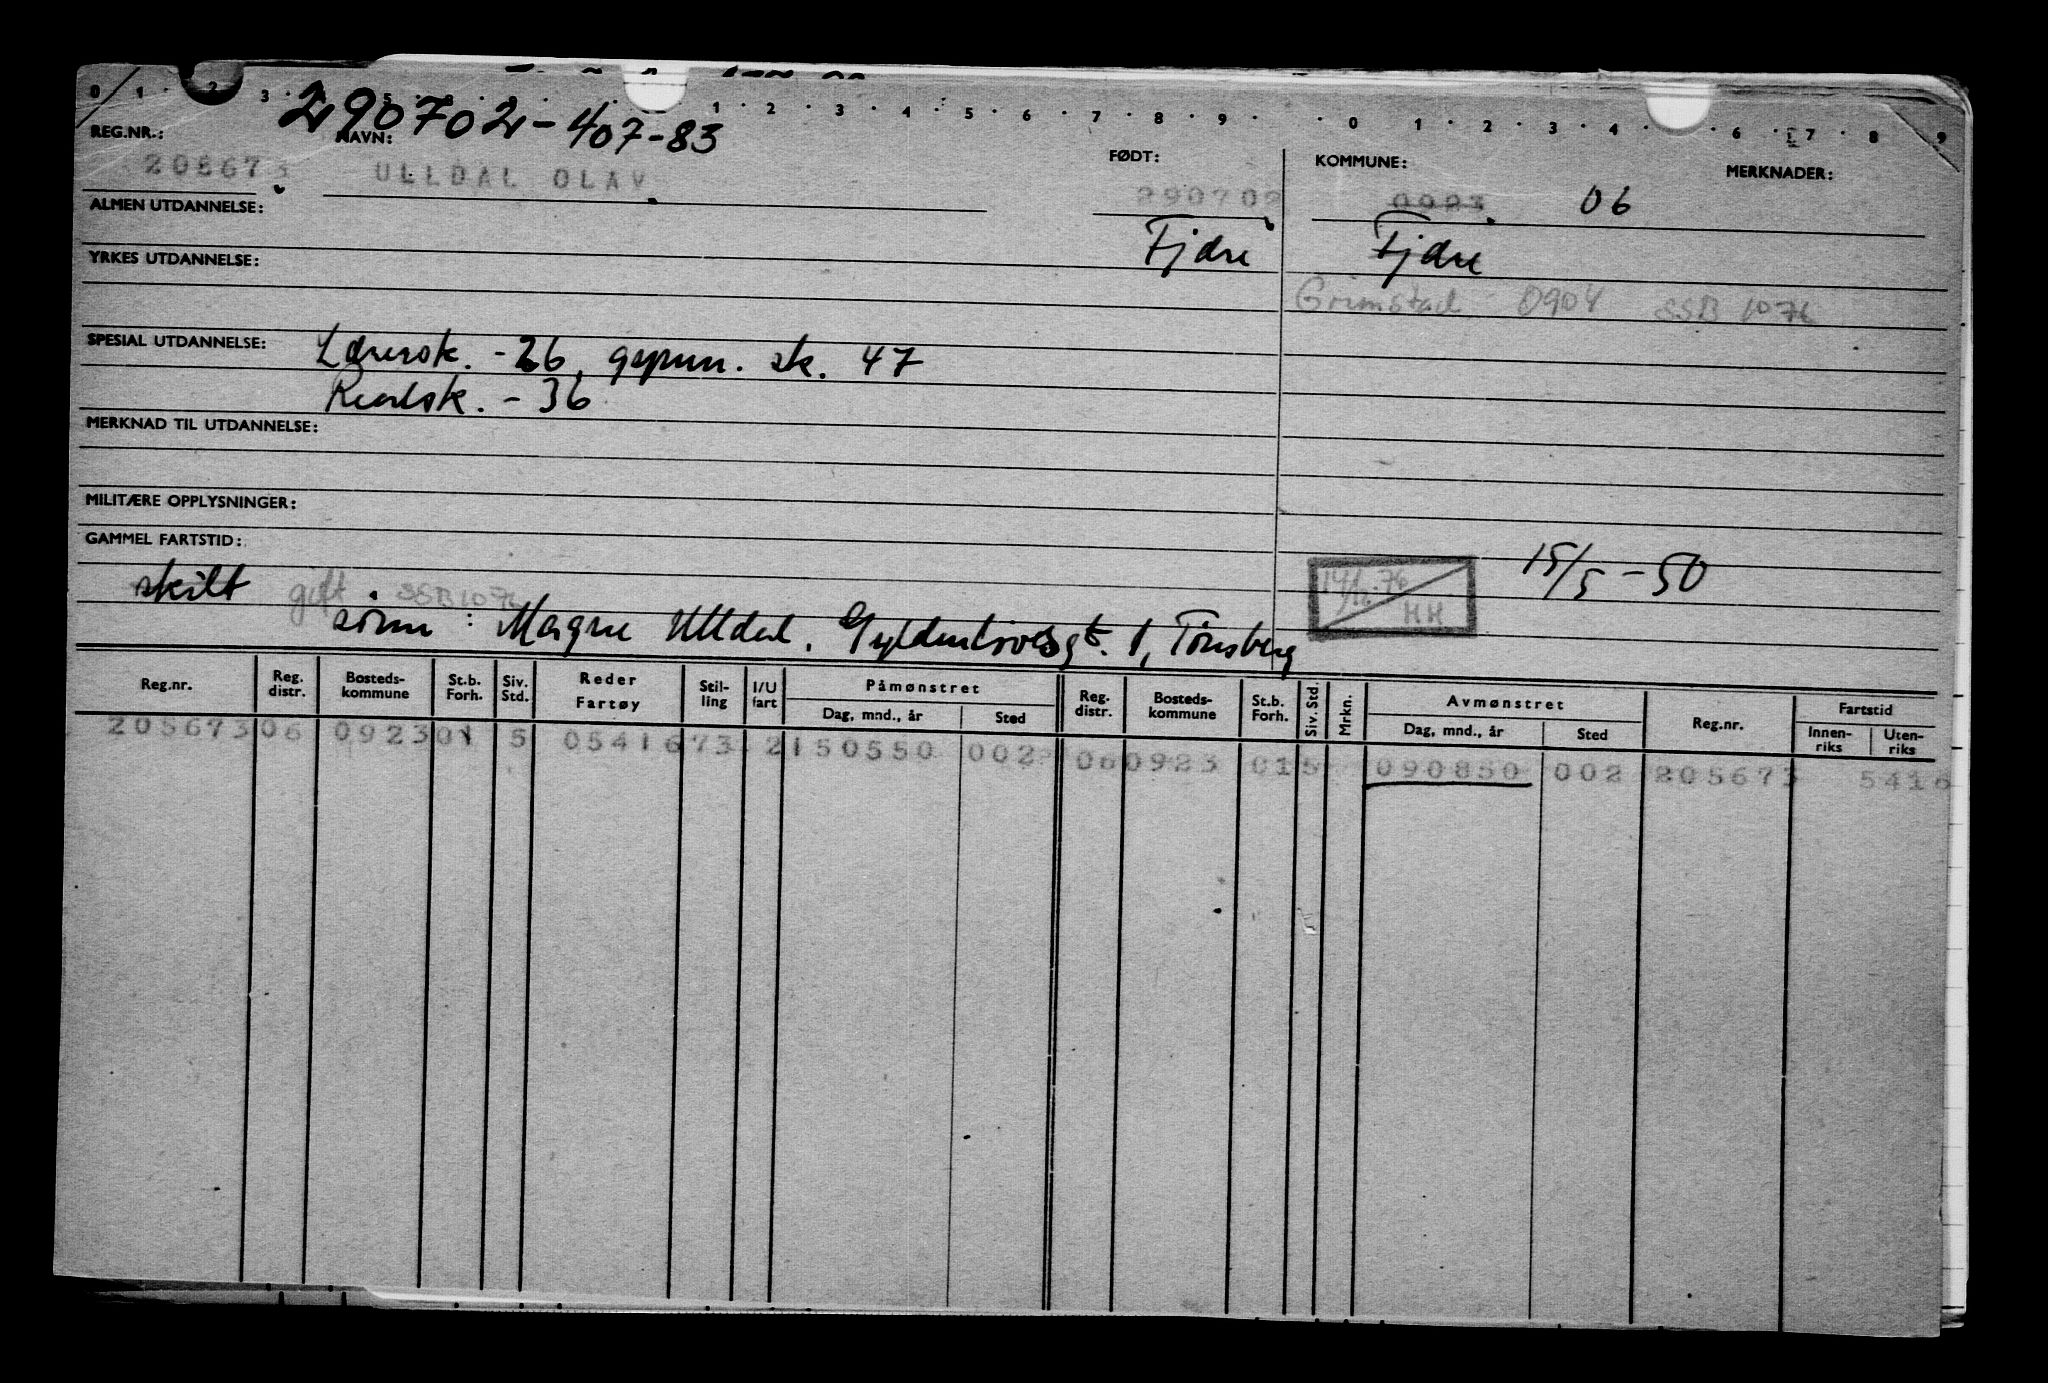 0 1 2 3 5 1 2 3 4 5 6 7 8 9 0 1 2 3 4 6 7 8 9
290702-407-83
REG.NR.: NAVN: FØDT: KOMMUNE: MERKNADER:
205673 ULLDAL OLAV 290702 0923 06
ALMEN UTDANNELSE:
Fjære Fjære
YRKES UTDANNELSE:
Grimstad 0904 SSB 1076
SPESIAL UTDANNELSE: Lærersk. -26, gymn. sk. 47
Realsk. - 36
MERKNAD TIL UTDANNELSE:
MILITÆRE OPPLYSNINGER:
GAMMEL FARTSTID:
skilt gift SSB 1076 15/5 - 50
HH
sønn: Magne Ulldal, Gyldenløvesgt. 1, Tønsberg
Reg.nr. Reg. distr. Bosteds-kommune St.b. Forh. Siv. Std. Reder Fartøy Stil-ling I/U fart Påmønstret Dag, mnd., år Sted Reg. distr. Bosteds-kommune St.b. Forh. Siv. Std. Mrkn. Avmønstret Dag, mnd., år Sted Reg.nr. Fartstid Innen-riks Uten-riks
205673 06 0923 01 5 05416 73 2 150550 002 06 0923 01 5 090850 002 205673 5416